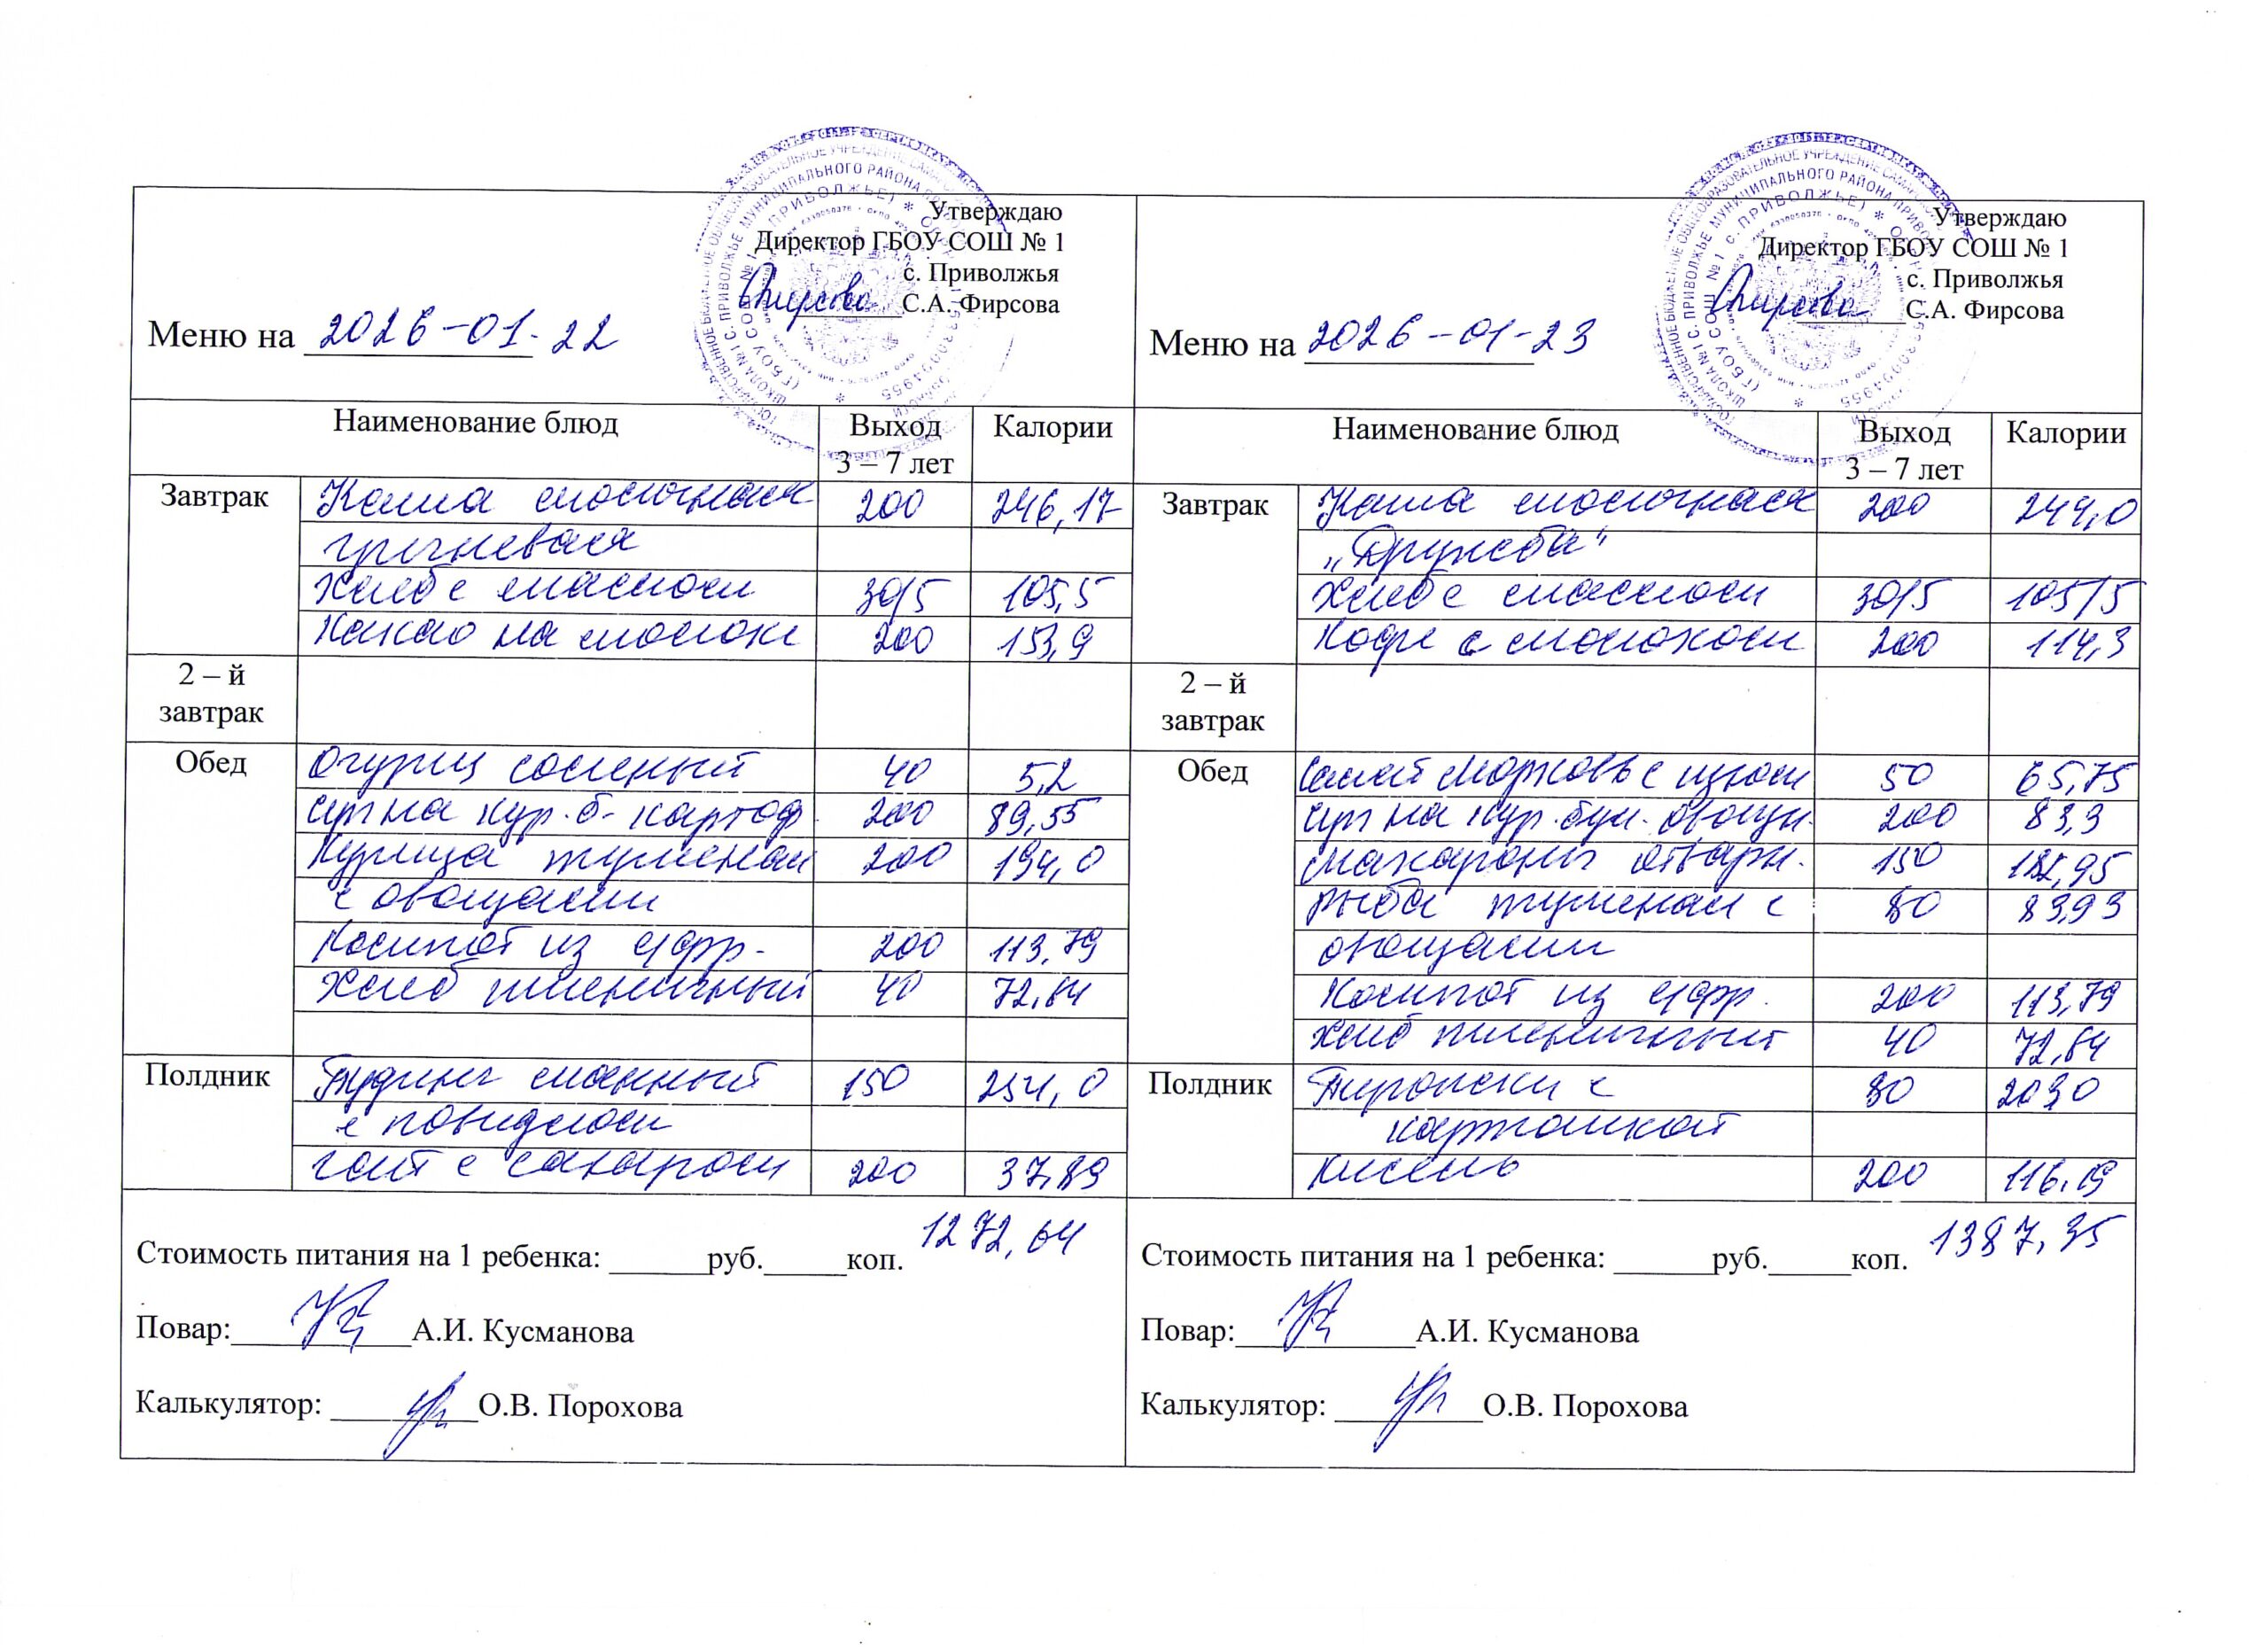 Утверждаю
Директор ГБОУ СОШ № 1
с. Приволжья
С.А. Фирсова
Меню на 2026-01-22
Наименование блюд Выход 3 – 7 лет Калории
Завтрак Каша молочная 200 246,17
гречневая
Хлеб с маслом 30/5 105,5
Какао на молоке 200 153,9
2 – й завтрак
Обед Огурец соленый 40 5,2
Суп на кур. б. картоф. 200 89,55
Курица тушеная 200 194,0
с овощами
Компот из с/фр. 200 113,79
Хлеб пшеничный 40 72,64
Полдник Пудинг манный 150 254,0
с повидлом
Чай с сахаром 200 37,89
Стоимость питания на 1 ребенка: ______руб._____коп. 1272,64
Повар:___________А.И. Кусманова
Калькулятор: _________О.В. Порохова
Утверждаю
Директор ГБОУ СОШ № 1
с. Приволжья
С.А. Фирсова
Меню на 2026-01-23
Наименование блюд Выход 3 – 7 лет Калории
Завтрак Каша молочная 200 244,0
„Дружба"
Хлеб с маслом 30/5 105,5
Кофе с молоком 200 114,3
2 – й завтрак
Обед Салат морковь с изюм 50 65,75
Суп на кур. бул. овощн. 200 83,3
Макароны отварн. 150
Рыба тушеная с 80 83,93
овощами
Компот из с/фр. 200 113,79
Хлеб пшеничный 40 72,64
Полдник Пирожки с 80 203,0
картошкой
Кисель 200 116,19
Стоимость питания на 1 ребенка: ______руб._____коп. 1387,35
Повар:___________А.И. Кусманова
Калькулятор: _________О.В. Порохова